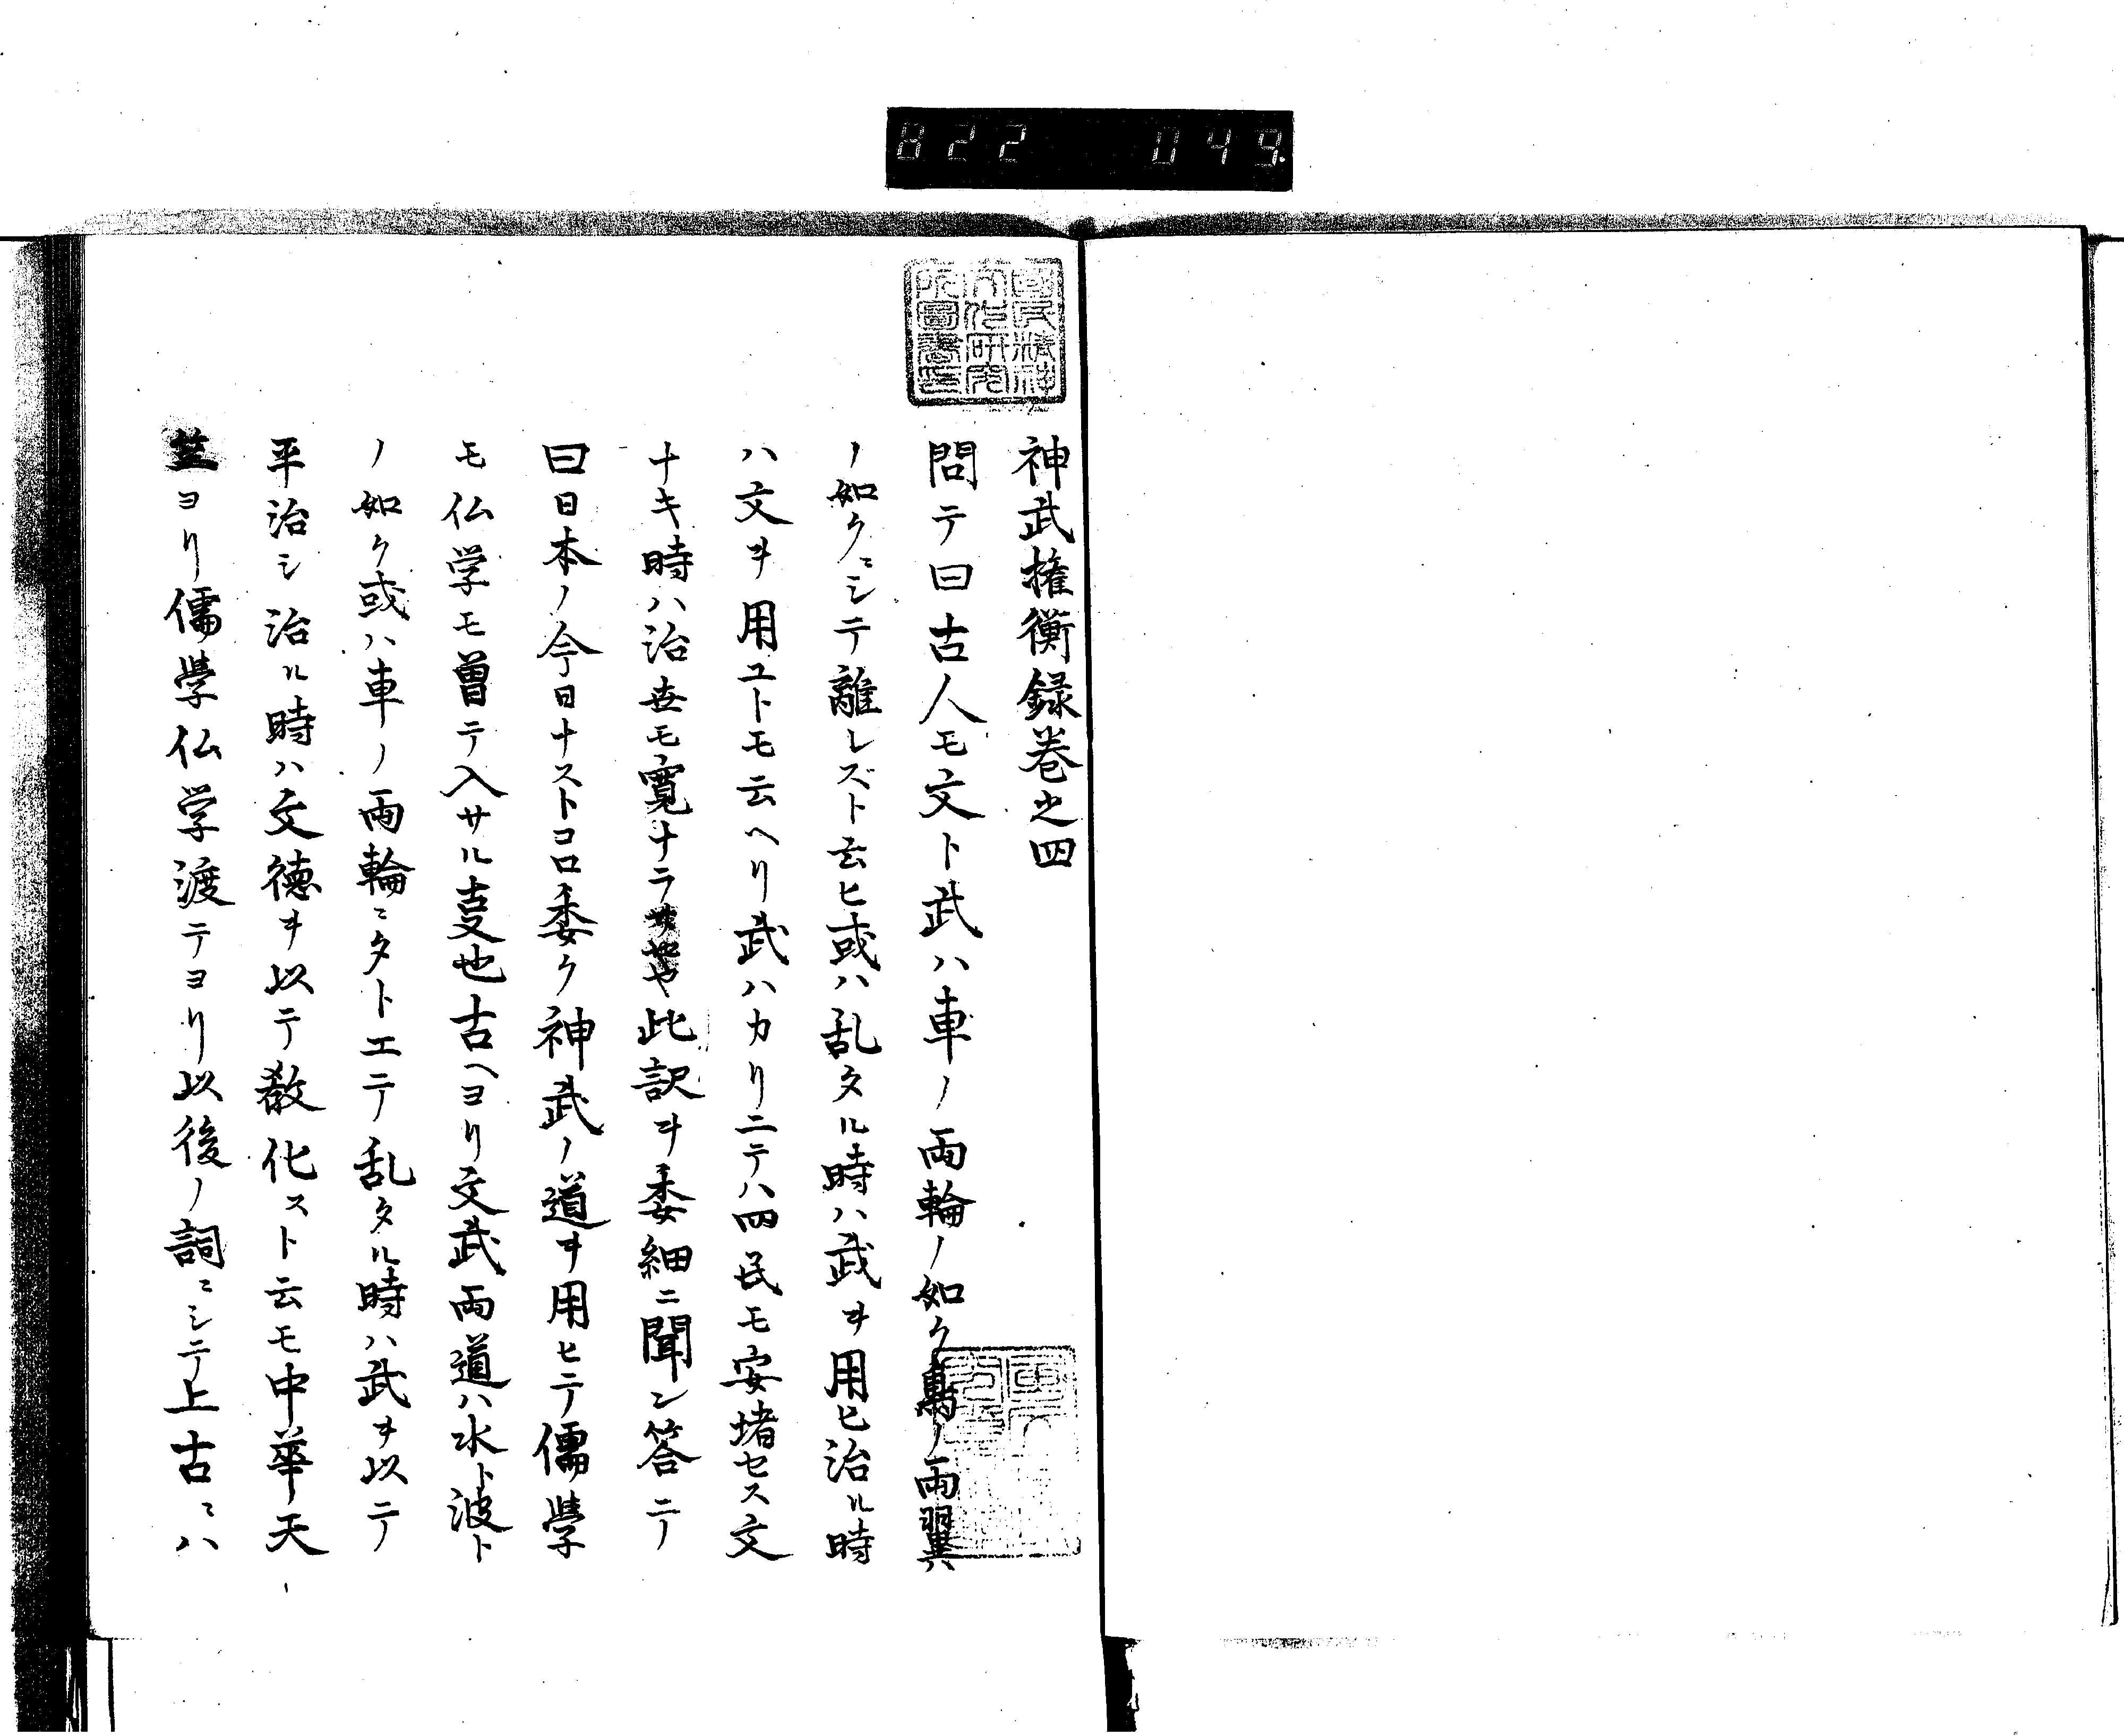 822 049.
國民精神
文化研究
所圖書印
神武権衡録巻之四
問テ曰古人モ文ト武ハ車ノ両輪ノ如ク鳥ノ両翼
ノ如クニシテ離レズト云ヒ或ハ乱タル時ハ武ヲ用ヒ治ル時
ハ文ヲ用ユトモ云ヘリ武ハカリニテハ四民モ安堵セス文
ナキ時ハ治世モ寛ナラ此訳ヲ委細ニ聞ン答テ
曰日本ノ今日ナストコロ委ク神武ノ道ヲ用ヒテ儒學
モ仏学モ曽テ入サル叓也古ヘヨリ文武両道ハ水ト波ト
ノ如ク或ハ車ノ両輪ニタトエテ乱タル時ハ武ヲ以テ
平治シ治ル時ハ文徳ヲ以テ教化スト云モ中華天
竺ヨリ儒學仏学渡テヨリ以後ノ詞ニシテ上古ニハ